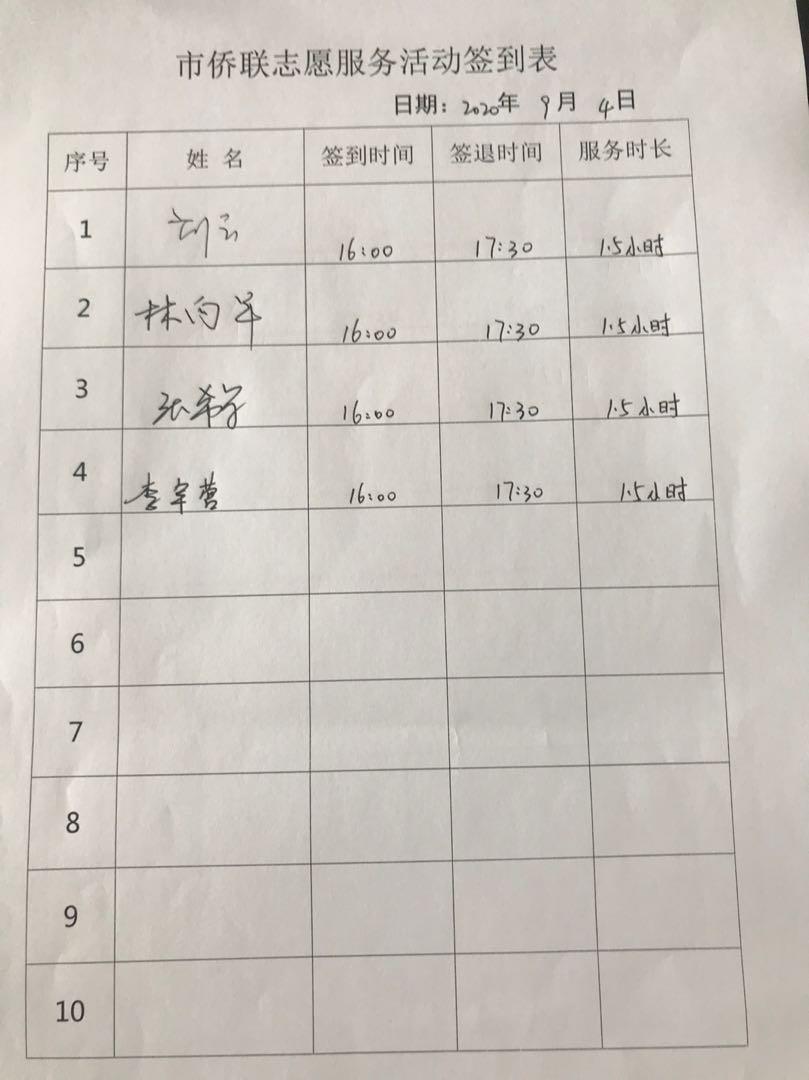 市侨联志愿服务活动签到表
日期：2020年 9月 4日
序号 姓名 签到时间 签退时间 服务时长
1 刘云 16:00 17:30 1.5小时
2 林向羊 16:00 17:30 1.5小时
3 张 16:00 17:30 1.5小时
4 李宇营 16:00 17:30 1.5小时
5
6
7
8
9
10